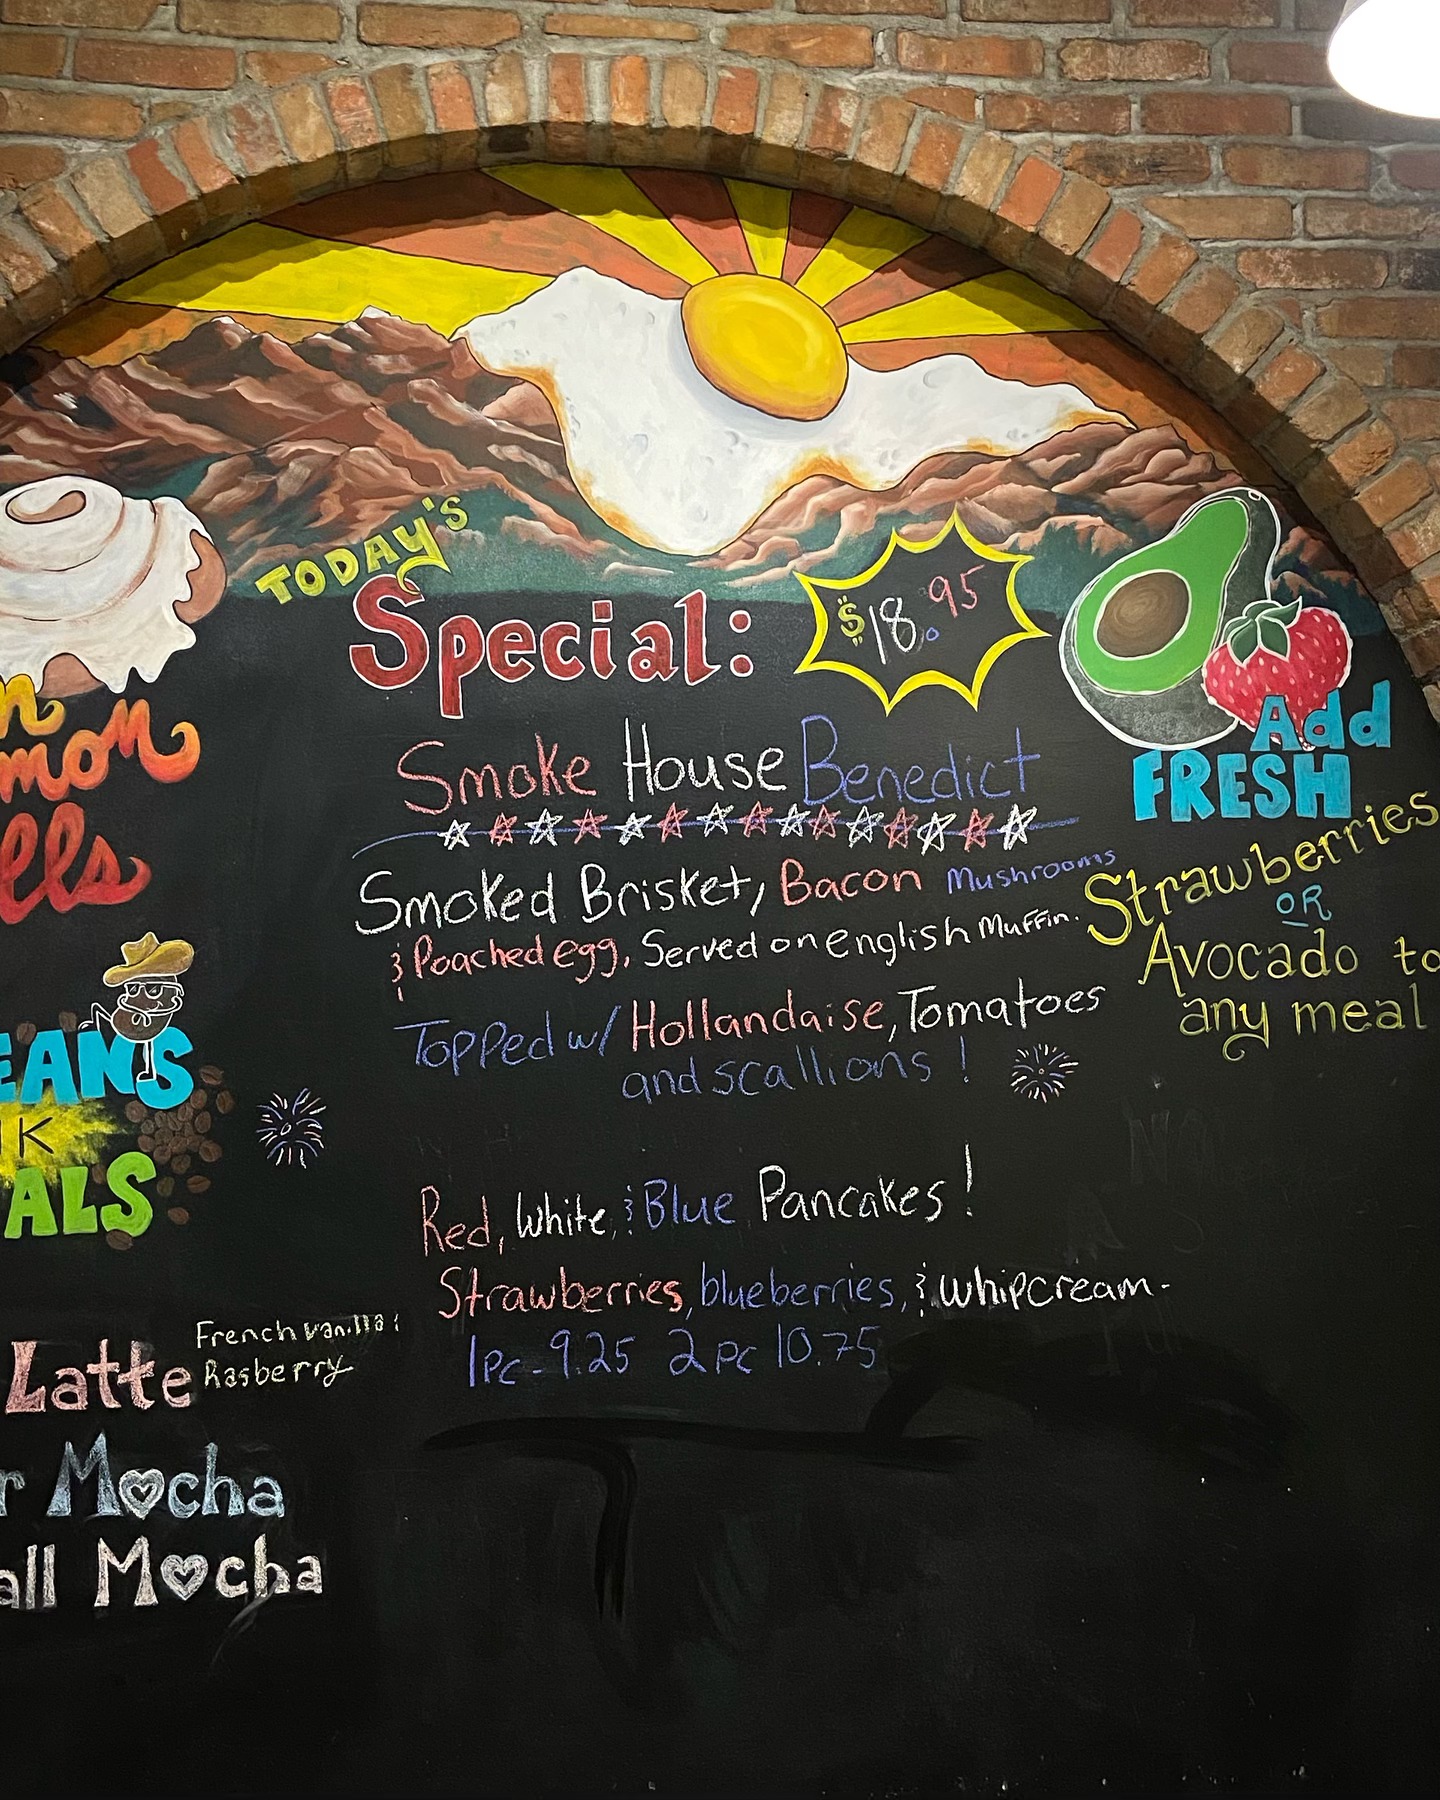 TODAY'S
Special:
$18.95
Smoke House Benedict
Smoked Brisket, Bacon Mushrooms
& Poached egg. Served on english Muffin.
Topped w/ Hollandaise, Tomatoes
and scallions!
Red, White, & Blue Pancakes!
Strawberries, blueberries, & whipcream-
1pc - 9.25 2pc 10.75
Add
FRESH
Strawberries
OR
Avocado to
any meal
mon
lls
EANS
K
ALS
Latte French vanilla &
Rasberry
r Mocha
all Mocha